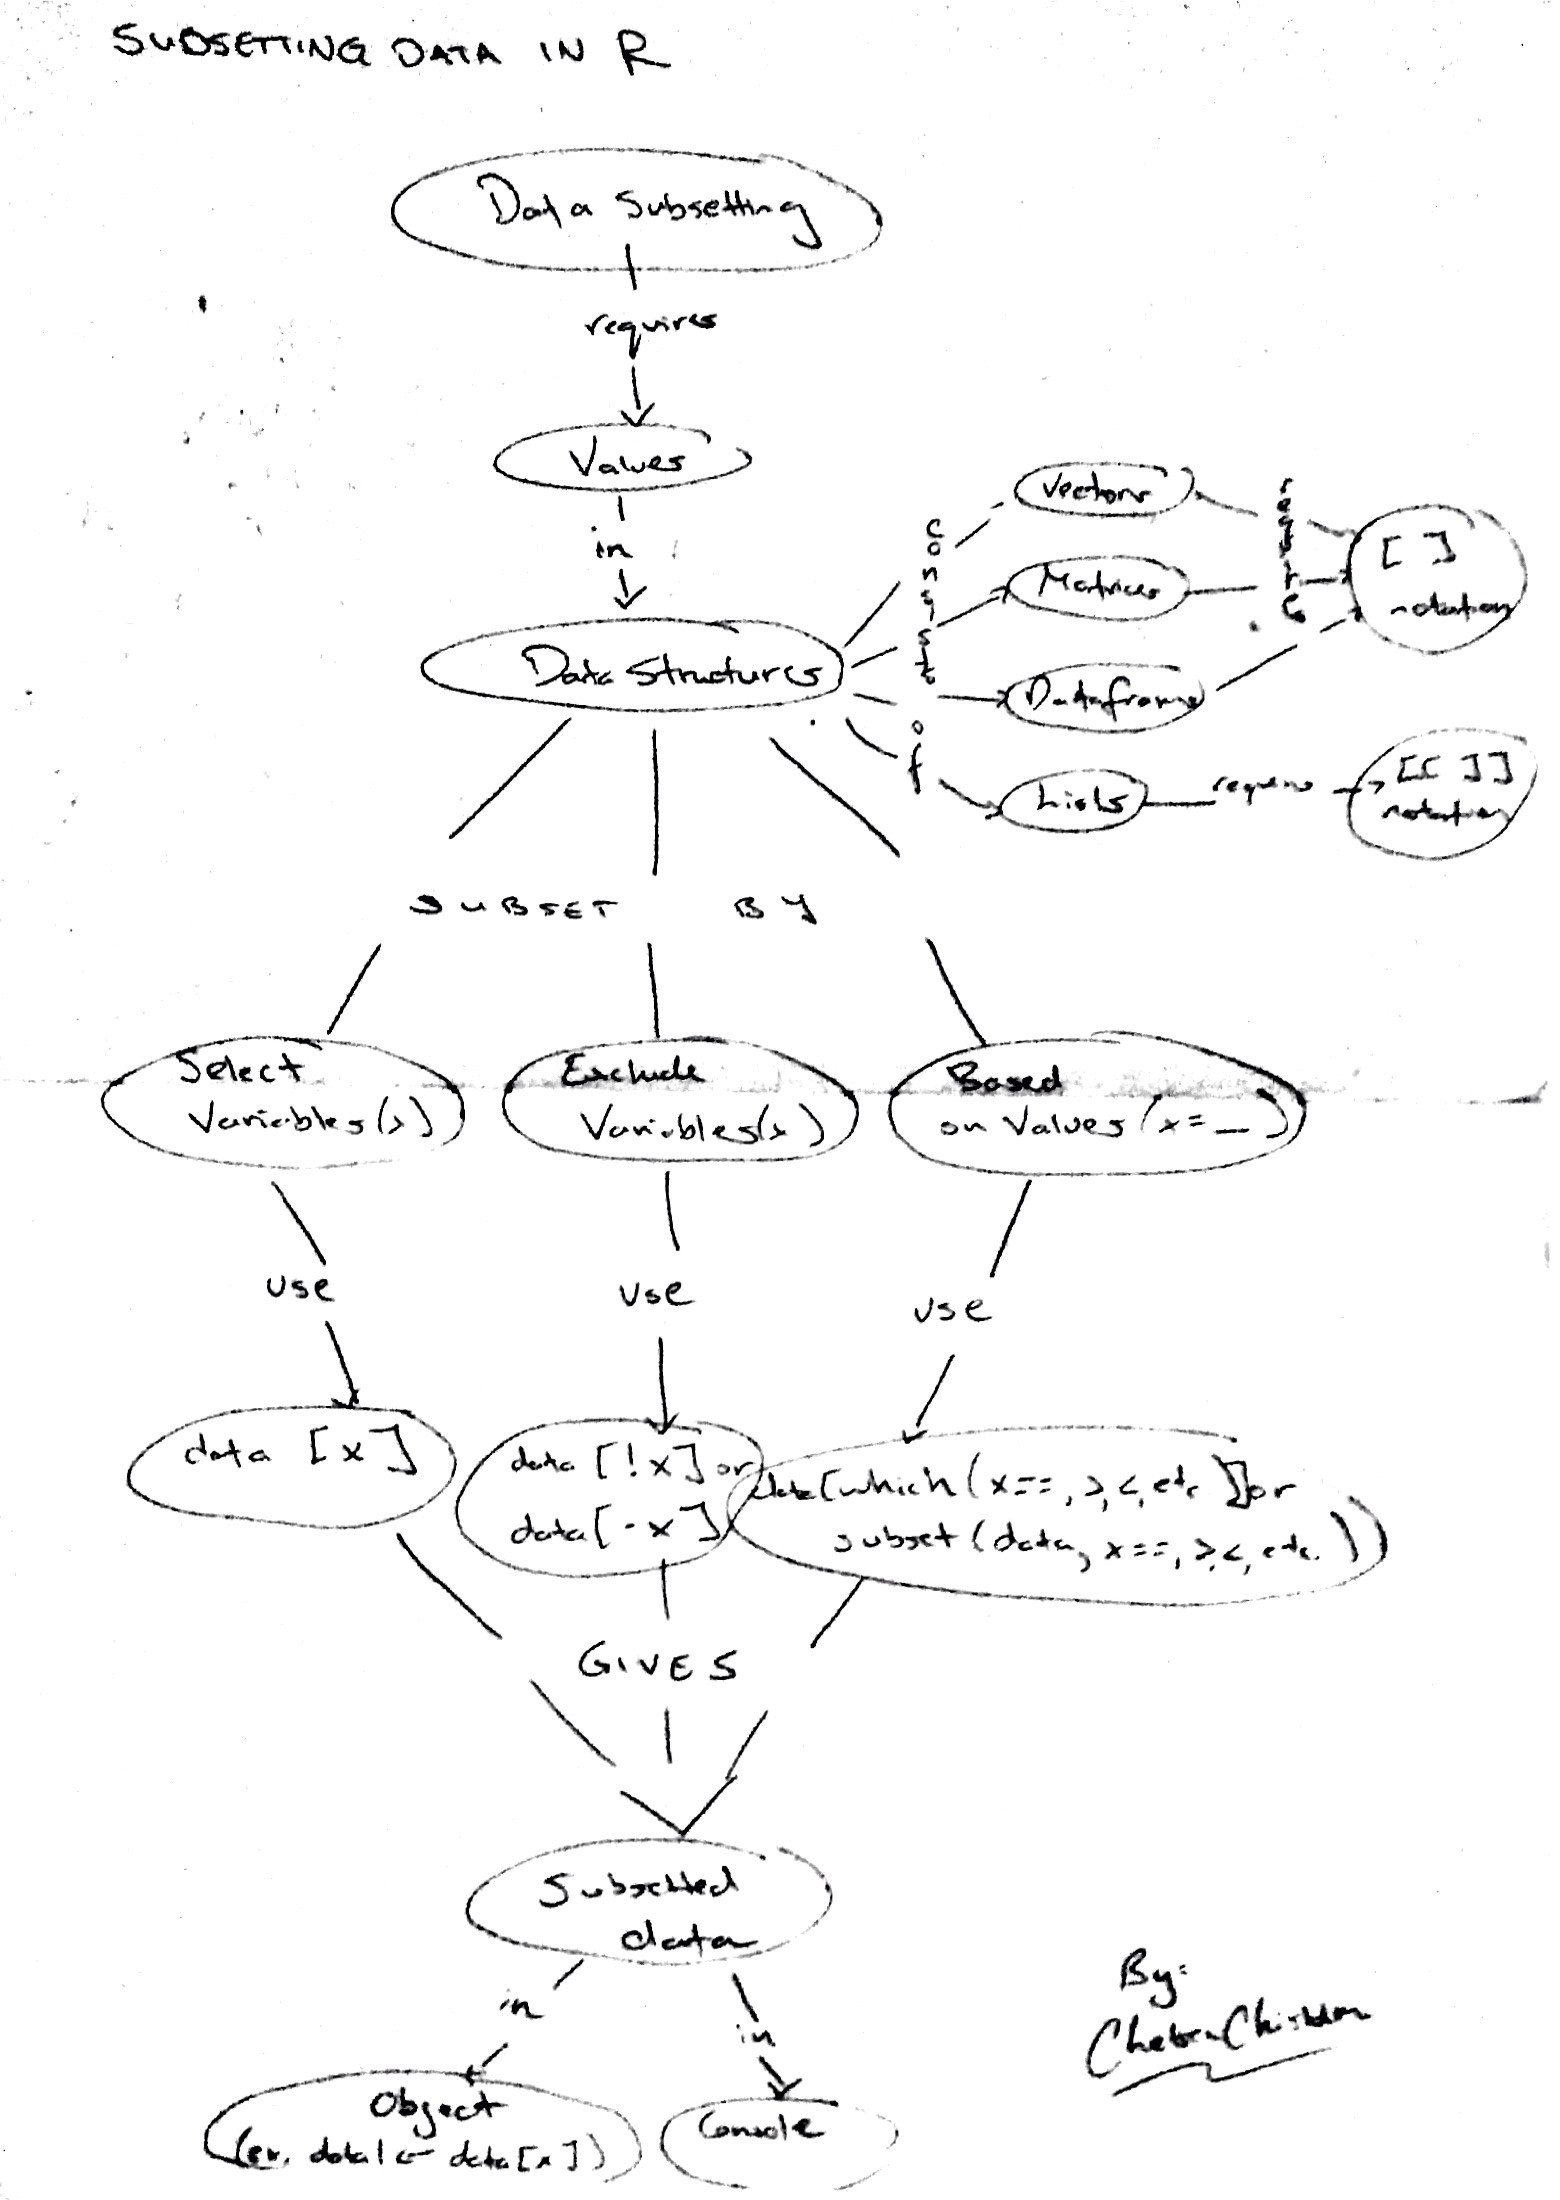 SUBSETTING DATA IN R
Data Subsetting
requires
Values
in
Data Structures
consist of
Vectors
Matrices
Dataframe
Lists
require
[ ]
notation
require
[[ ]]
notation
SUBSET BY
Select
Variables(x)
Exclude
Variables(x)
Based
on Values (x=_)
use
use
use
data [x]
data [!x] or
data[-x]
data[which(x==,>,<,etc.)] or
subset(data, x==,>,<,etc.))
GIVES
Subsetted
data
in
in
Object
(ex. data1 <- data[x])
Console
By: